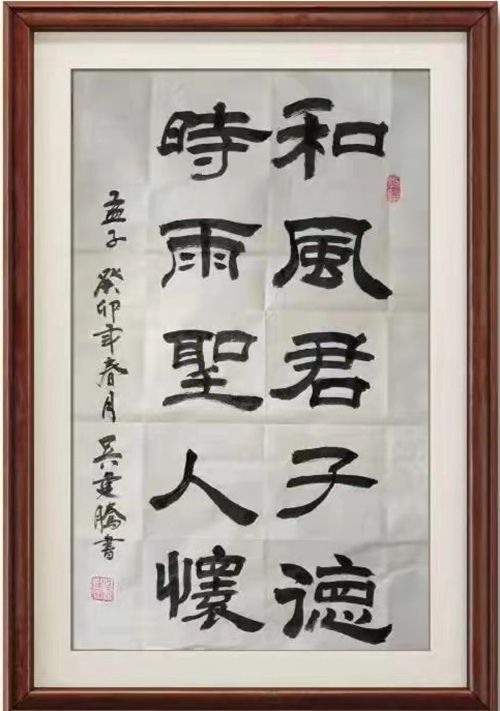 和風君子德
時雨聖人懷
孟子 癸卯年春月 吳建騰書